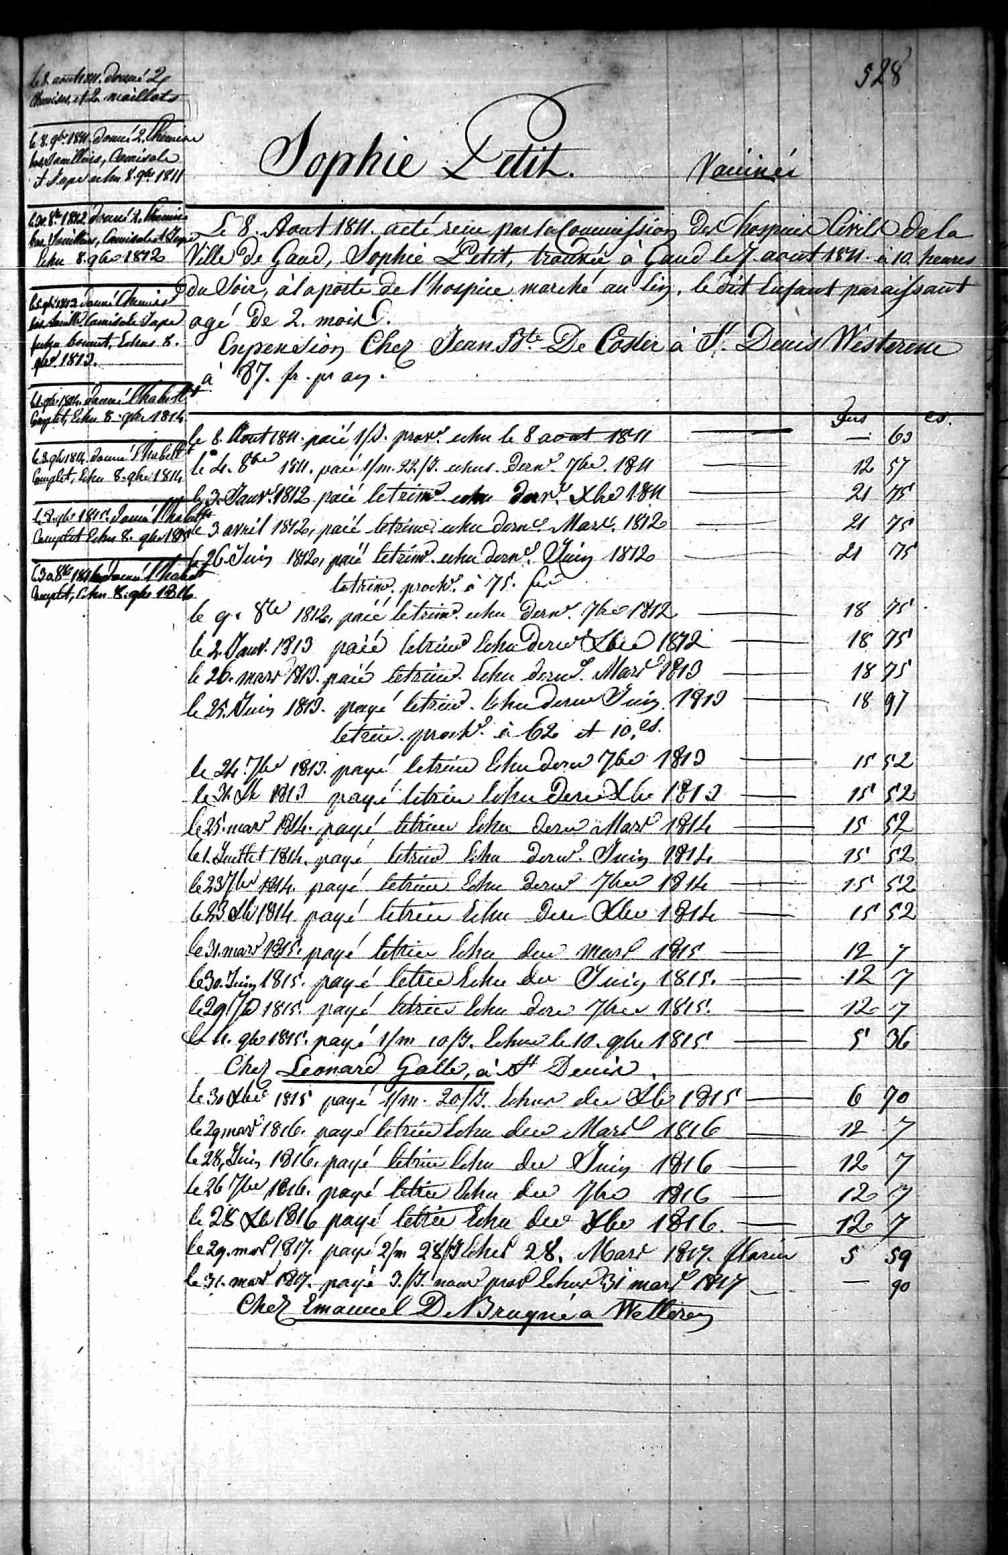 528
Sophie Petit.
Vacciné
le 8. aout 1811. donné 2
Chemises, et 2 maillots
le 8. 9bre 1811. donné 2. Chemise
bas Souilliers, Camisole
et Jupe echu 8. 9bre 1811
8bre 1812 donné 2. Chemise
bas Souilliers, Camisole et Jupe
Echu 8. 9bre 1812
9bre 1813 donné Chemise
bas Soulli Camisole Jupe
bonnet, Echus 8.
9bre 1813.
9bre 1814. donné l'habillt
Complet, Echu 8. 9bre 1814
le 8. 9bre 1814. donné l'habillt
Complet, Echu 8. 9bre 1814
9bre 1815. donné l'habillt
Complet Echu 8. 9bre 1815
8bre 1816 donné l'habillt
Complet, Echu 8. 9bre 1816
Le 8. Aout 1811. a été recu par la Commission des hospices Civils de la
Ville de Gand, Sophie Petit, trouvée à Gand le 7 aout 1811. à 10 heures
du Soir, à la porte de l'hospice marché au lin, le dit Enfant paraissant
agé de 2. mois.
En pension Chez Jean Bte De Coster à St Denis Westerem
à 87. fr. pr an.
frs cs.
le 8. Aout 1811. paié 1/J. prov. echu le 8 aout 1811 — 63
le 4. 8bre 1811. paié 1/m. 22/J. echus dern. 7bre 1811 12 57
le 3. Janv. 1812. paié le trim. echu dern. Xbre 1811 21 75
le 3 avril 1812, paié le trim. echu dern. Mars 1812 21 75
le 26. Juin 1812, paié le trim. echu dern. Juin 1812 21 75
le trim. proch. à 75. fr
le 9. 8bre 1812, paié le trim. echu dern. 7bre 1812 18 75.
le 2 Janv. 1813 paié le trim Echu dern Xbre 1812 18 75
le 26. mars 1813. paié le trim. Echu dern. Mars 1813 18 75
le 25. Juin 1813. payé le trim. Echu dern Juin 1813 18 97
le trim. proch. à 62 et 10. cs.
le 24. 7bre 1813. payé le trim Echu dern 7bre 1813 15 52
le 31. Xb 1813 payé le trim Echu dern Xbre 1813 15 52
le 25. mars 1814. payé le trim Echu dern Mars 1814 15 52
le 1. Juillet 1814. payé le trim Echu dern. Juin 1814 15 52
le 23 7bre 1814. payé le trim Echu dern 7bre 1814 15 52
le 23 Xb 1814. payé le trim Echu der Xbre 1814 15 52
le 31. mars 1815. payé le trim Echu der mars 1815 12 7
le 30. Juin 1815. payé le trim Echu der Juin 1815. 12 7
le 29 7b 1815. payé le trim Echu der 7bre 1815. 12 7
le 11. 9bre 1815. payé 1/m 10/J. Echus le 10. 9bre 1815 5 36
Chez Leonard Galle, à St Denis.
le 30 Xbre 1815 payé 1/m. 20/J. Echus der Xb 1815 6 70
le 29 mars 1816. payé le trim Echu der Mars 1816 12 7
le 28, Juin 1816. payé le trim Echu der Juin 1816 12 7
le 26 7bre 1816. payé le trim Echu der 7bre 1816 12 7
le 28 Xb 1816 payé le trim Echu der Xbre 1816. 12 7
le 29. mars 1817. payé 2/m 28/J Echus 28. Mars 1817. florin 5 59
le 31. mars 1817. payé 3./J. Echus 31 mars 1817 — 90
Chez Emanuel De Bruyne a Wetteren